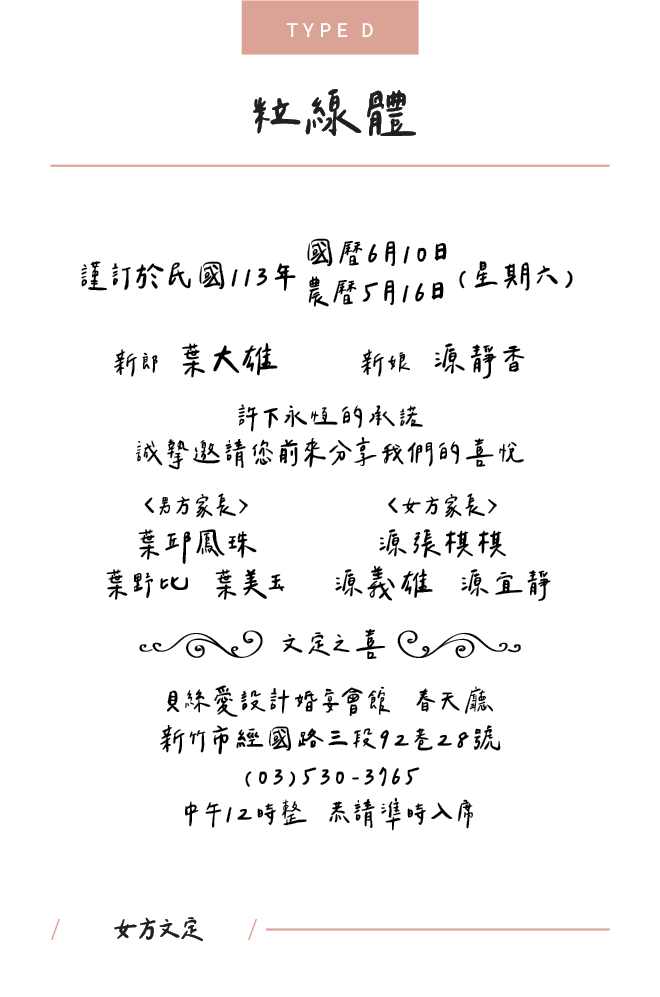 TYPE D
粒線體
謹訂於民國113年 國曆6月10日 (星期六)
農曆5月16日
新郎 葉大雄 新娘 源靜香
許下永恆的承諾
誠摯邀請您前來分享我們的喜悅
<男方家長> <女方家長>
葉邱鳳珠 源張棋棋
葉野比 葉美玉 源義雄 源宜靜
文定之喜
貝絲愛設計婚宴會館 春天廳
新竹市經國路三段92巷28號
(03)530-3765
中午12時整 恭請準時入席
/ 女方文定 /